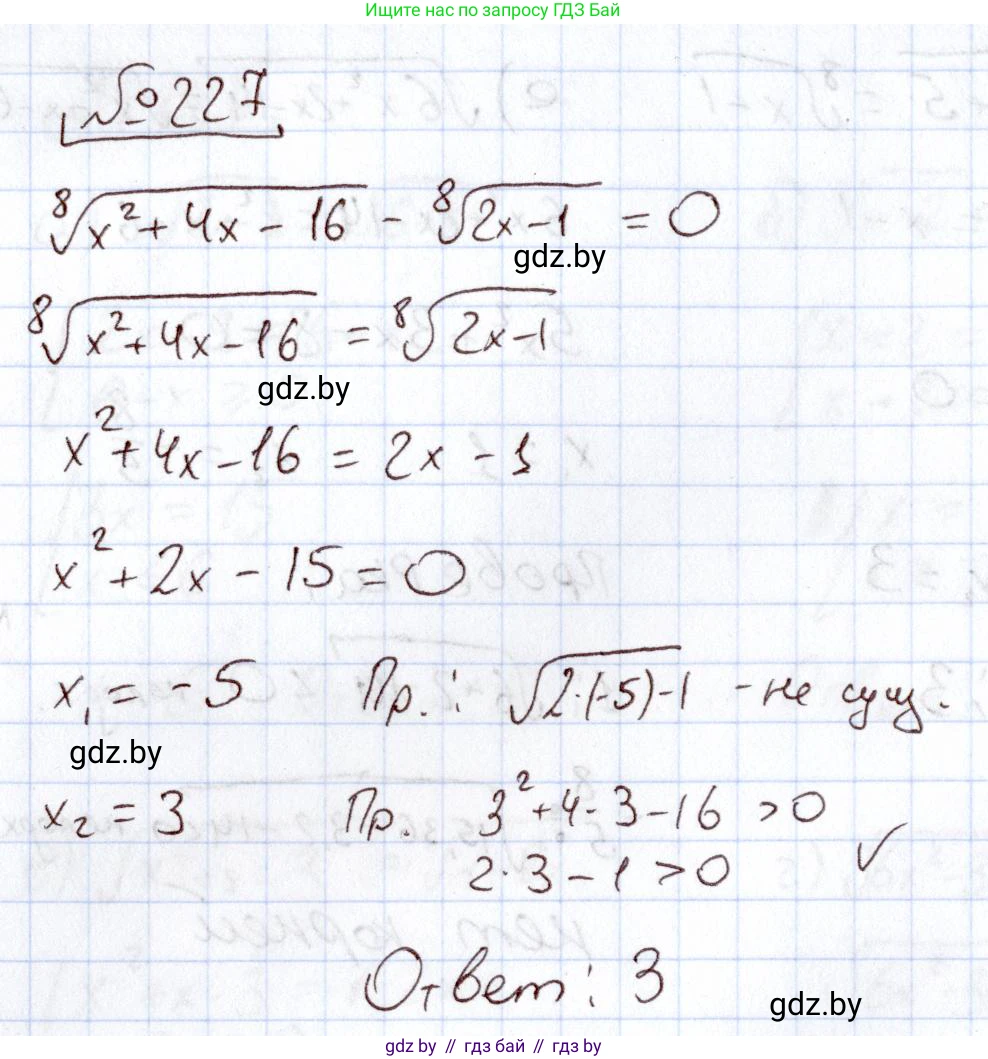 Ищите нас по запросу ГДЗ Бай
№ 227
⁸√(x² + 4x - 16) - ⁸√(2x - 1) = 0
gdz.by
⁸√(x² + 4x - 16) = ⁸√(2x - 1)
gdz.by
x² + 4x - 16 = 2x - 1
x² + 2x - 15 = 0
x₁ = -5 Пр.: √(2·(-5) - 1) - не сущ.
gdz.by
x₂ = 3 Пр. 3² + 4·3 - 16 > 0
2·3 - 1 > 0 ✓
Ответ: 3
gdz.by
gdz.by // гдз бай // гдз by